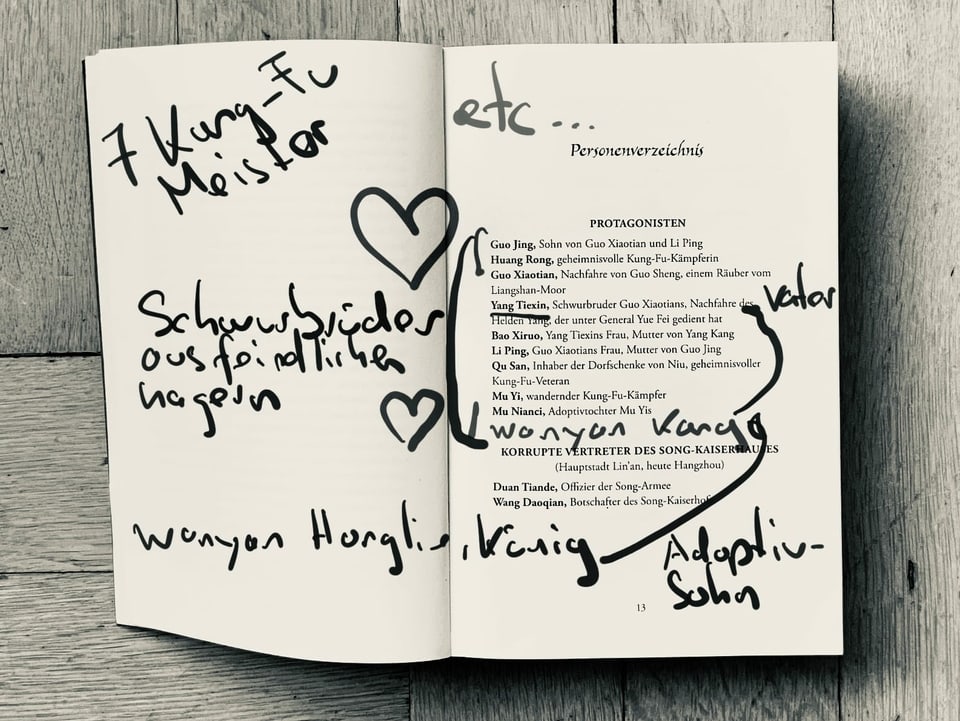 7 Kung-Fu
Meister
Schwurbrüder
aus feindlichen
Lagern
Wanyan Honglie, König
etc...
Personenverzeichnis
PROTAGONISTEN
Guo Jing, Sohn von Guo Xiaotian und Li Ping
Huang Rong, geheimnisvolle Kung-Fu-Kämpferin
Guo Xiaotian, Nachfahre von Guo Sheng, einem Räuber vom
Liangshan-Moor
Yang Tiexin, Schwurbruder Guo Xiaotians, Nachfahre des
Helden Yang, der unter General Yue Fei gedient hat
Vater
Bao Xiruo, Yang Tiexins Frau, Mutter von Yang Kang
Li Ping, Guo Xiaotians Frau, Mutter von Guo Jing
Qu San, Inhaber der Dorfschenke von Niu, geheimnisvoller
Kung-Fu-Veteran
Mu Yi, wandernder Kung-Fu-Kämpfer
Mu Nianci, Adoptivtochter Mu Yis
Wanyan Kang
KORRUPTE VERTRETER DES SONG-KAISERHAUSES
(Hauptstadt Lin’an, heute Hangzhou)
Duan Tiande, Offizier der Song-Armee
Wang Daoqian, Botschafter des Song-Kaiserhofs
Adoptiv-
Sohn
13